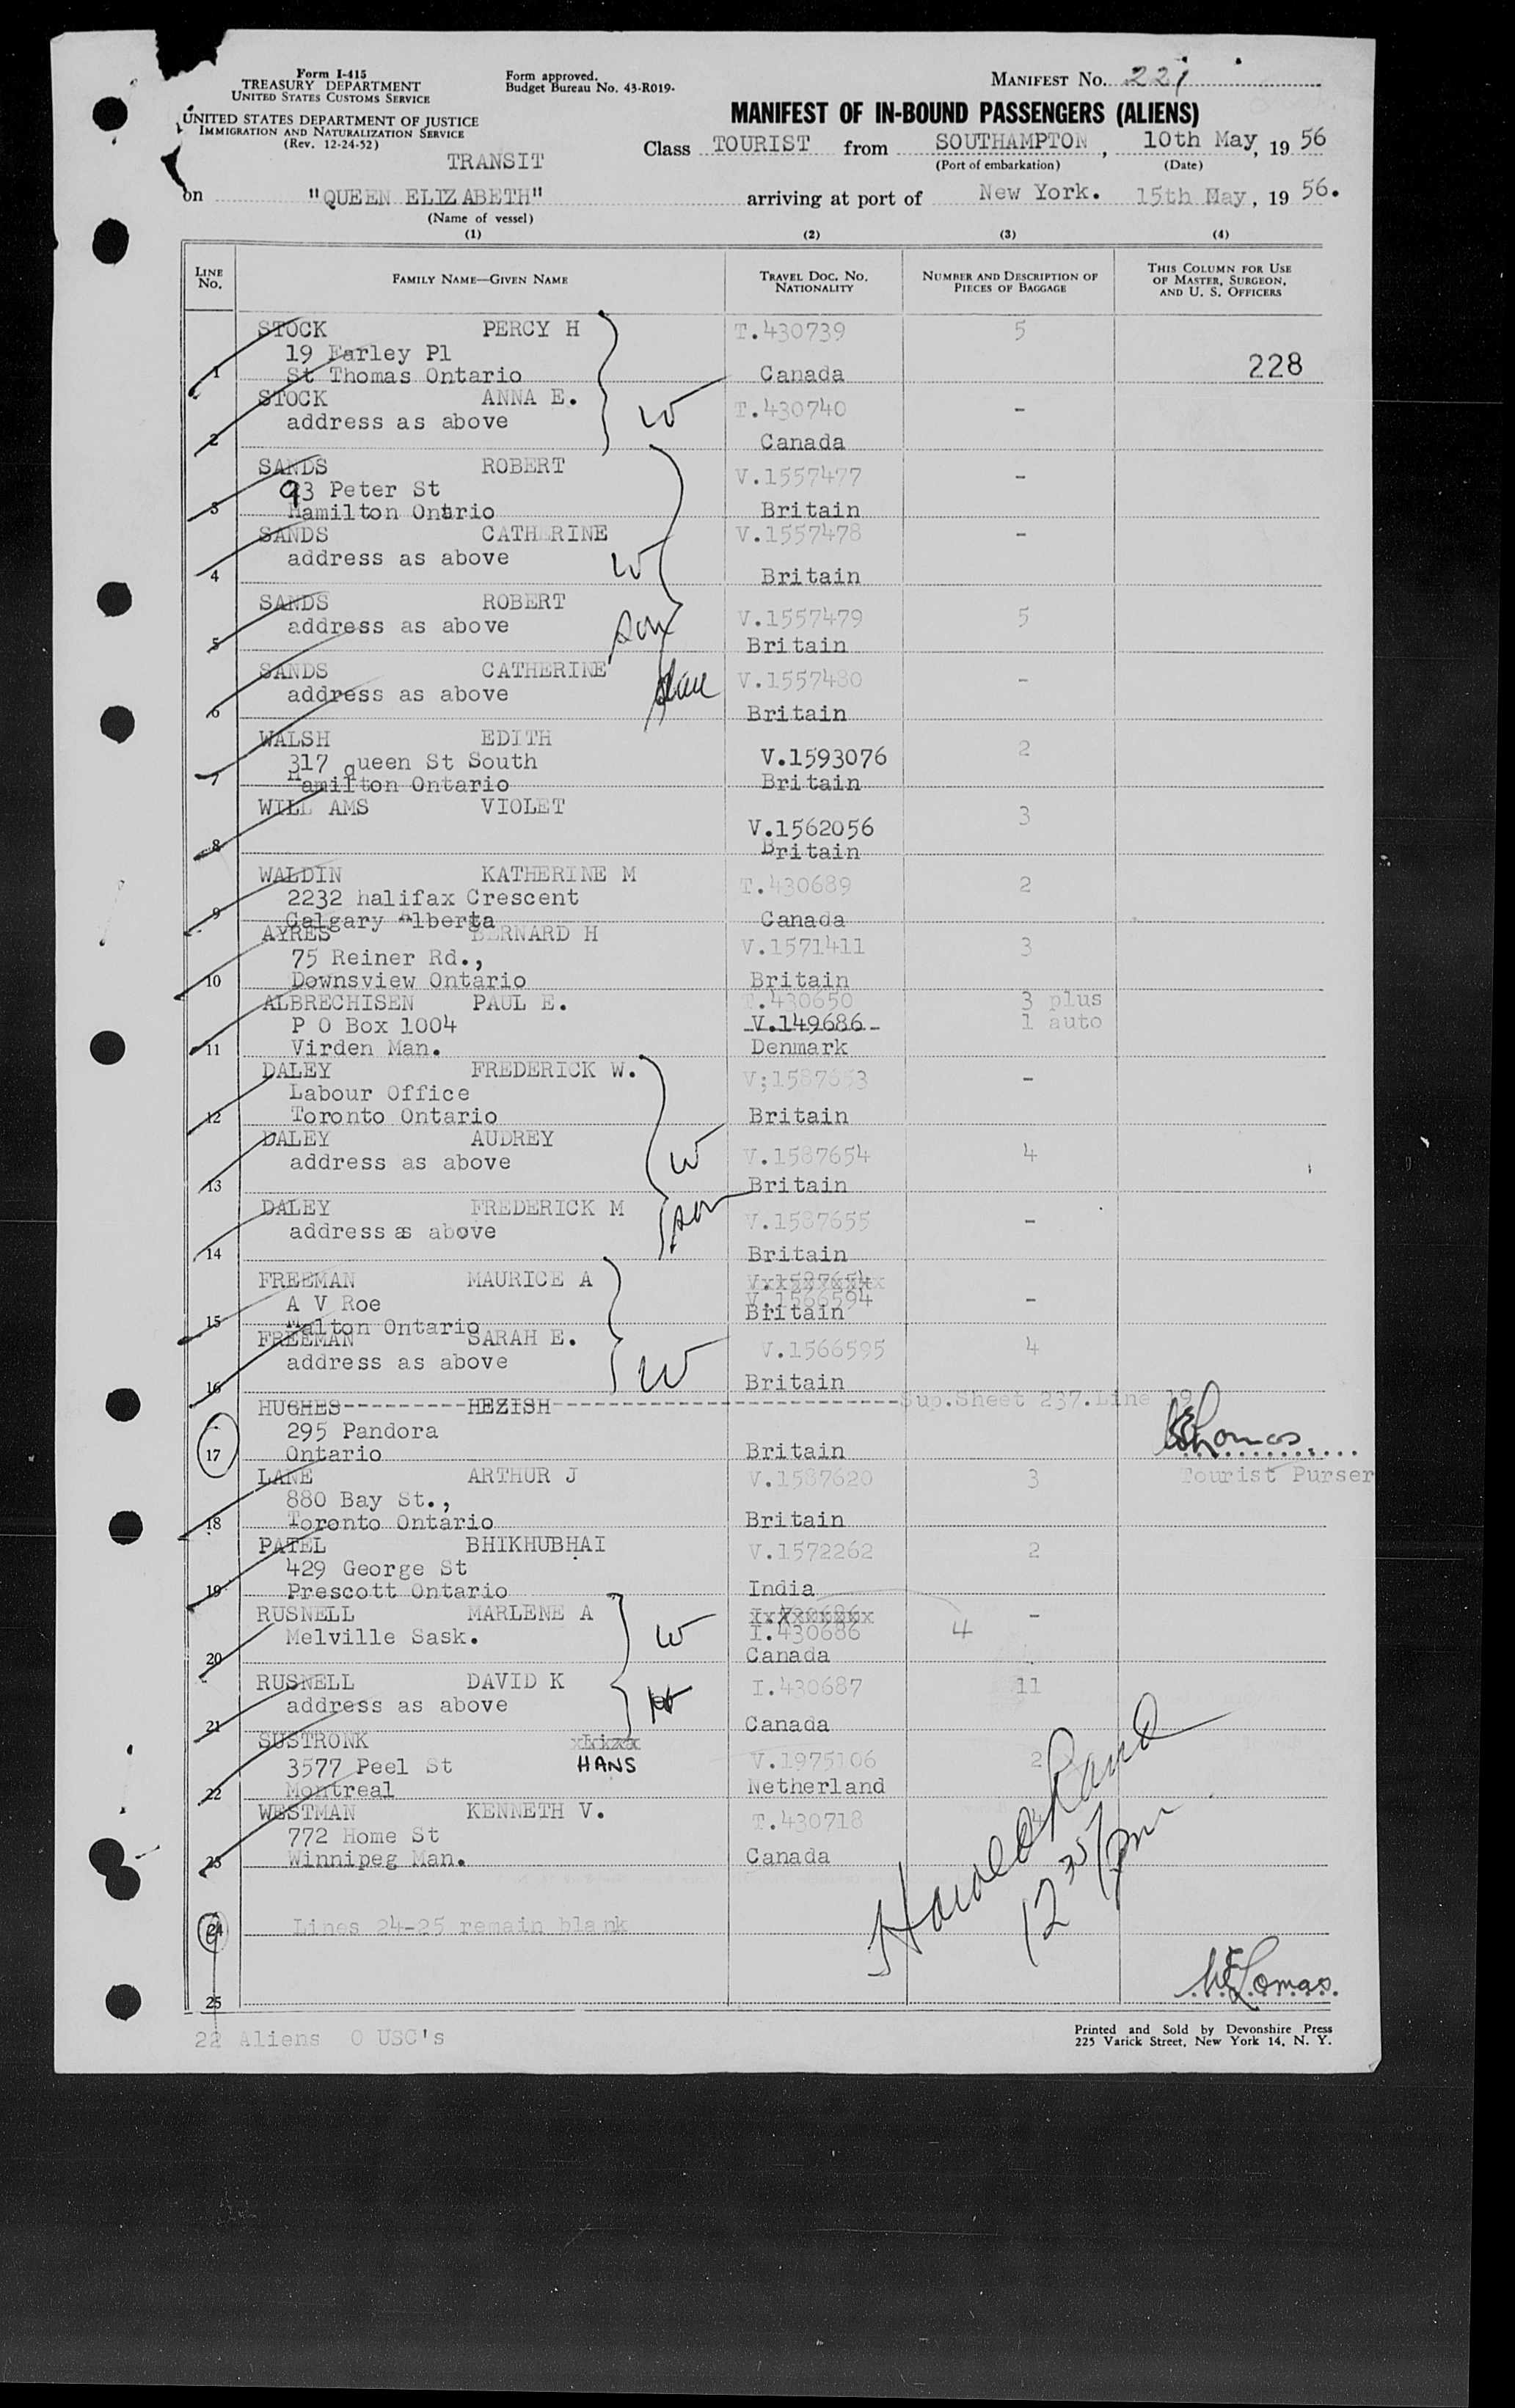 Form I-415
TREASURY DEPARTMENT
UNITED STATES CUSTOMS SERVICE
UNITED STATES DEPARTMENT OF JUSTICE
IMMIGRATION AND NATURALIZATION SERVICE
(Rev. 12-24-52)
Form approved.
Budget Bureau No. 43-R019-
MANIFEST NO. 221
MANIFEST OF IN-BOUND PASSENGERS (ALIENS)
TRANSIT
Class TOURIST from SOUTHAMPTON, 10th May, 19 56
(Port of embarkation) (Date)
on "QUEEN ELIZABETH" arriving at port of New York. 15th May, 19 56.
(Name of vessel)
(1) (2) (3) (4)
LINE NO. FAMILY NAME—GIVEN NAME TRAVEL DOC. NO. NATIONALITY NUMBER AND DESCRIPTION OF PIECES OF BAGGAGE THIS COLUMN FOR USE OF MASTER, SURGEON, AND U. S. OFFICERS
STOCK PERCY H T.430739 5
19 Farley Pl 228
1 St Thomas Ontario Canada
STOCK ANNA E. W T.430740 -
address as above
2 Canada
SANDS ROBERT V.1557477 -
93 Peter St
3 Hamilton Ontrio Britain
SANDS CATHERINE V.1557478 -
address as above W
4 Britain
SANDS ROBERT V.1557479 5
address as above son
5 Britain
SANDS CATHERINE V.1557480 -
address as above dau
6 Britain
WALSH EDITH V.1593076 2
317 queen St South
7 Hamilton Ontario Britain
WILL AMS VIOLET V.1562056 3
8 Britain
WALDIN KATHERINE M T.430689 2
2232 halifax Crescent
9 Calgary Alberta Canada
AYRES BERNARD H V.1571411 3
75 Reiner Rd.,
10 Downsview Ontario Britain
ALBRECHISEN PAUL E. T.430650 3 plus
P O Box 1004 V.149686 1 auto
11 Virden Man. Denmark
DALEY FREDERICK W. V;1587653 -
Labour Office
12 Toronto Ontario Britain
DALEY AUDREY W V.1587654 4
address as above
13 Britain
DALEY FREDERICK M son V.1587655 -
address as above
14 Britain
FREEMAN MAURICE A V.1587654
A V Roe V.1566594 -
15 Malton Ontario Britain
FREEMAN SARAH E. V.1566595 4
address as above W
16 Britain
HUGHES HEZISH Sup.Sheet 237.Line 19
295 Pandora
17 Ontario Britain Lomas
LANE ARTHUR J V.1587620 3 Tourist Purser
880 Bay St.,
18 Toronto Ontario Britain
PATEL BHIKHUBHAI V.1572262 2
429 George St
19 Prescott Ontario India
RUSNELL MARLENE A W -
Melville Sask. I.430686 4
20 Canada
RUSNELL DAVID K I.430687 11
address as above
21 Canada
SUSTRONK
3577 Peel St HANS V.1975106 2
22 Montreal Netherland
WESTMAN KENNETH V. T.430718
772 Home St
23 Winnipeg Man. Canada
Harold Rand
12 35 pm
24 Lines 24-25 remain blank
25 Lomas.
22 Aliens 0 USC's
Printed and Sold by Devonshire Press
225 Varick Street, New York 14, N. Y.